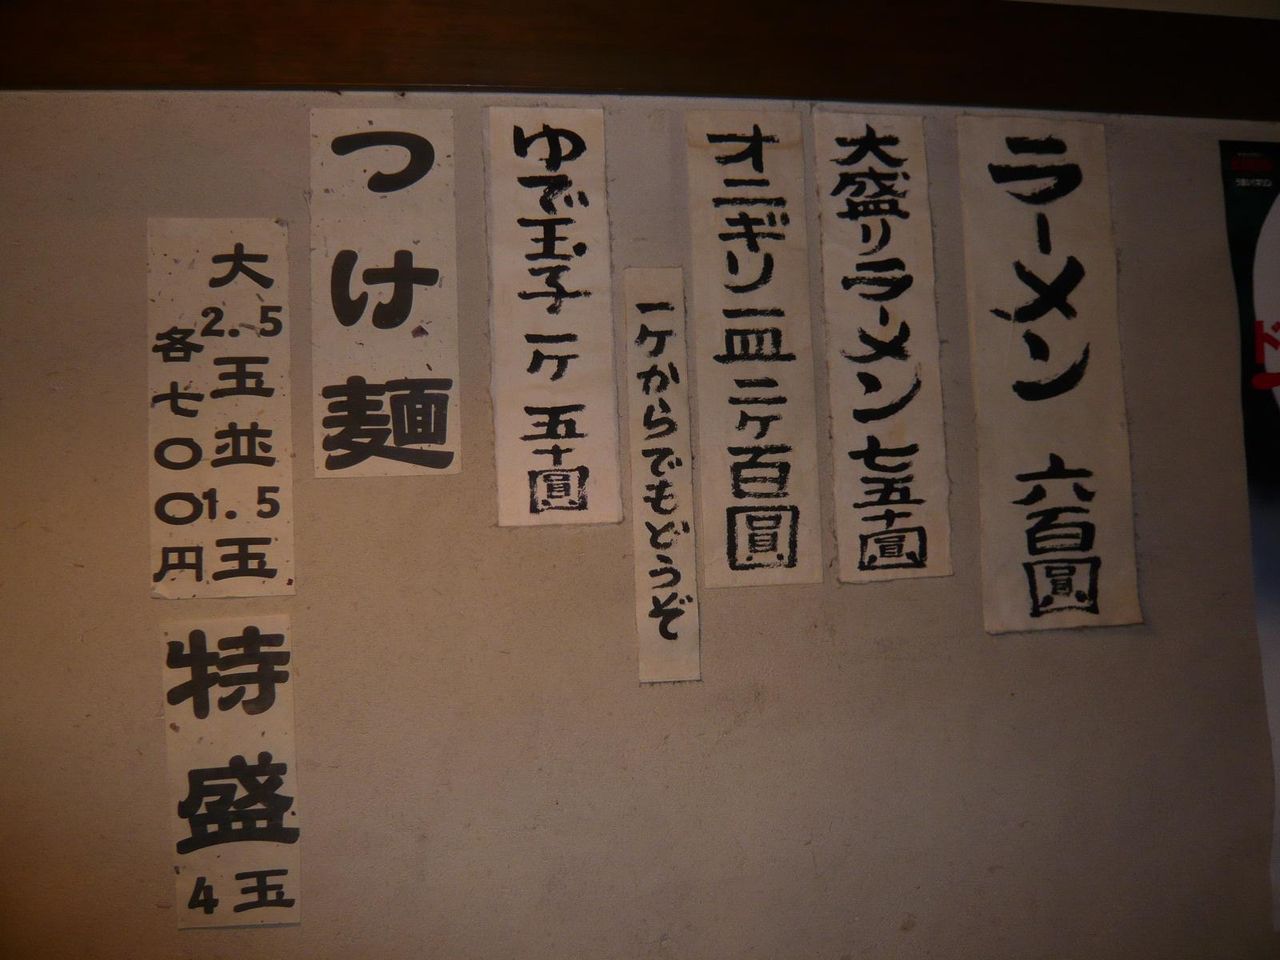 ラーメン 六百圓
大盛りラーメン 七五十圓
オニギリ一皿二ケ百圓
一ケからでもどうぞ
ゆで玉子一ケ 五十圓
つけ麺
大2.5玉並1.5玉
各七〇〇円
特盛
4玉